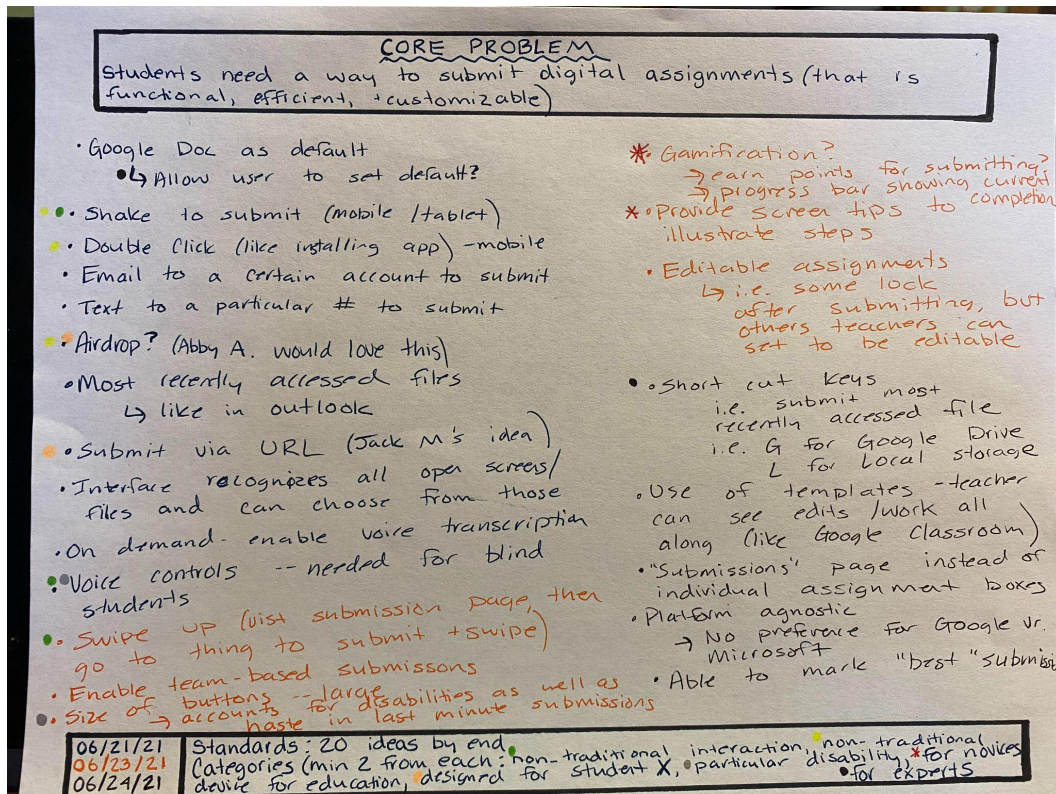 CORE PROBLEM
Students need a way to submit digital assignments (that is
functional, efficient, + customizable)
• Google Doc as default
↳ Allow user to set default?
• Shake to submit (mobile / tablet)
• Double Click (like installing app) - mobile
• Email to a certain account to submit
• Text to a particular # to submit
• Airdrop? (Abby A. would love this)
• Most recently accessed files
↳ like in outlook
• Submit via URL (Jack M's idea)
• Interface recognizes all open screens/
files and can choose from those
• On demand - enable voice transcription
• Voice controls -- needed for blind
students
• Swipe up (vist submission page, then
go to thing to submit + swipe)
• Enable team-based submissons
• Size of buttons -- large
→ accounts for disabilities as well as
haste in last minute submissions
* • Gamification?
→ earn points for submitting?
→ progress bar showing current
to completion
* • Provide screen tips to
illustrate steps
• Editable assignments
↳ i.e. some lock
after submitting, but
others teachers can
set to be editable
• Short cut keys
i.e. submit most
recently accessed file
i.e. G for Google Drive
L for Local storage
• Use of templates - teacher
can see edits / work all
along (like Google Classroom)
• "Submissions" page instead of
individual assignment boxes
• Platform agnostic
→ No preference for Google vr.
Microsoft
• Able to mark "best" submissi
06/21/21
06/23/21
06/24/21
Standards: 20 ideas by end
Categories (min 2 from each: non-traditional interaction, non-traditional
device for education, designed for student X, particular disability, *for novices
for experts